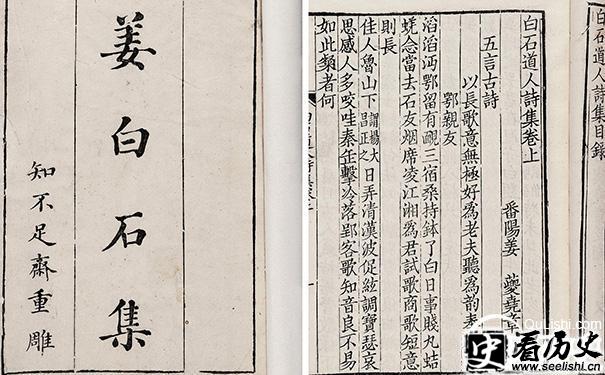 姜白石集
知不足齋重雕
白石道人詩集目錄
白石道人詩集卷上
番陽姜 夔堯章
五言古詩
以長歌意無極好爲老夫聽爲韵奉
鄂親友
滔滔沔鄂留有靦三宿桑持鉢了白日事賤丸蛣
蜣念當去石友烟席凌江湘爲君試歌商歌短意
則長
佳人魯山下謂楊大昌正之日弄清漢波促絃調寶瑟哀
思感人多咬哇秦缶擊冷落郢客歌知音良不易
如此類者何
史 看历史
www.seelishi.cn